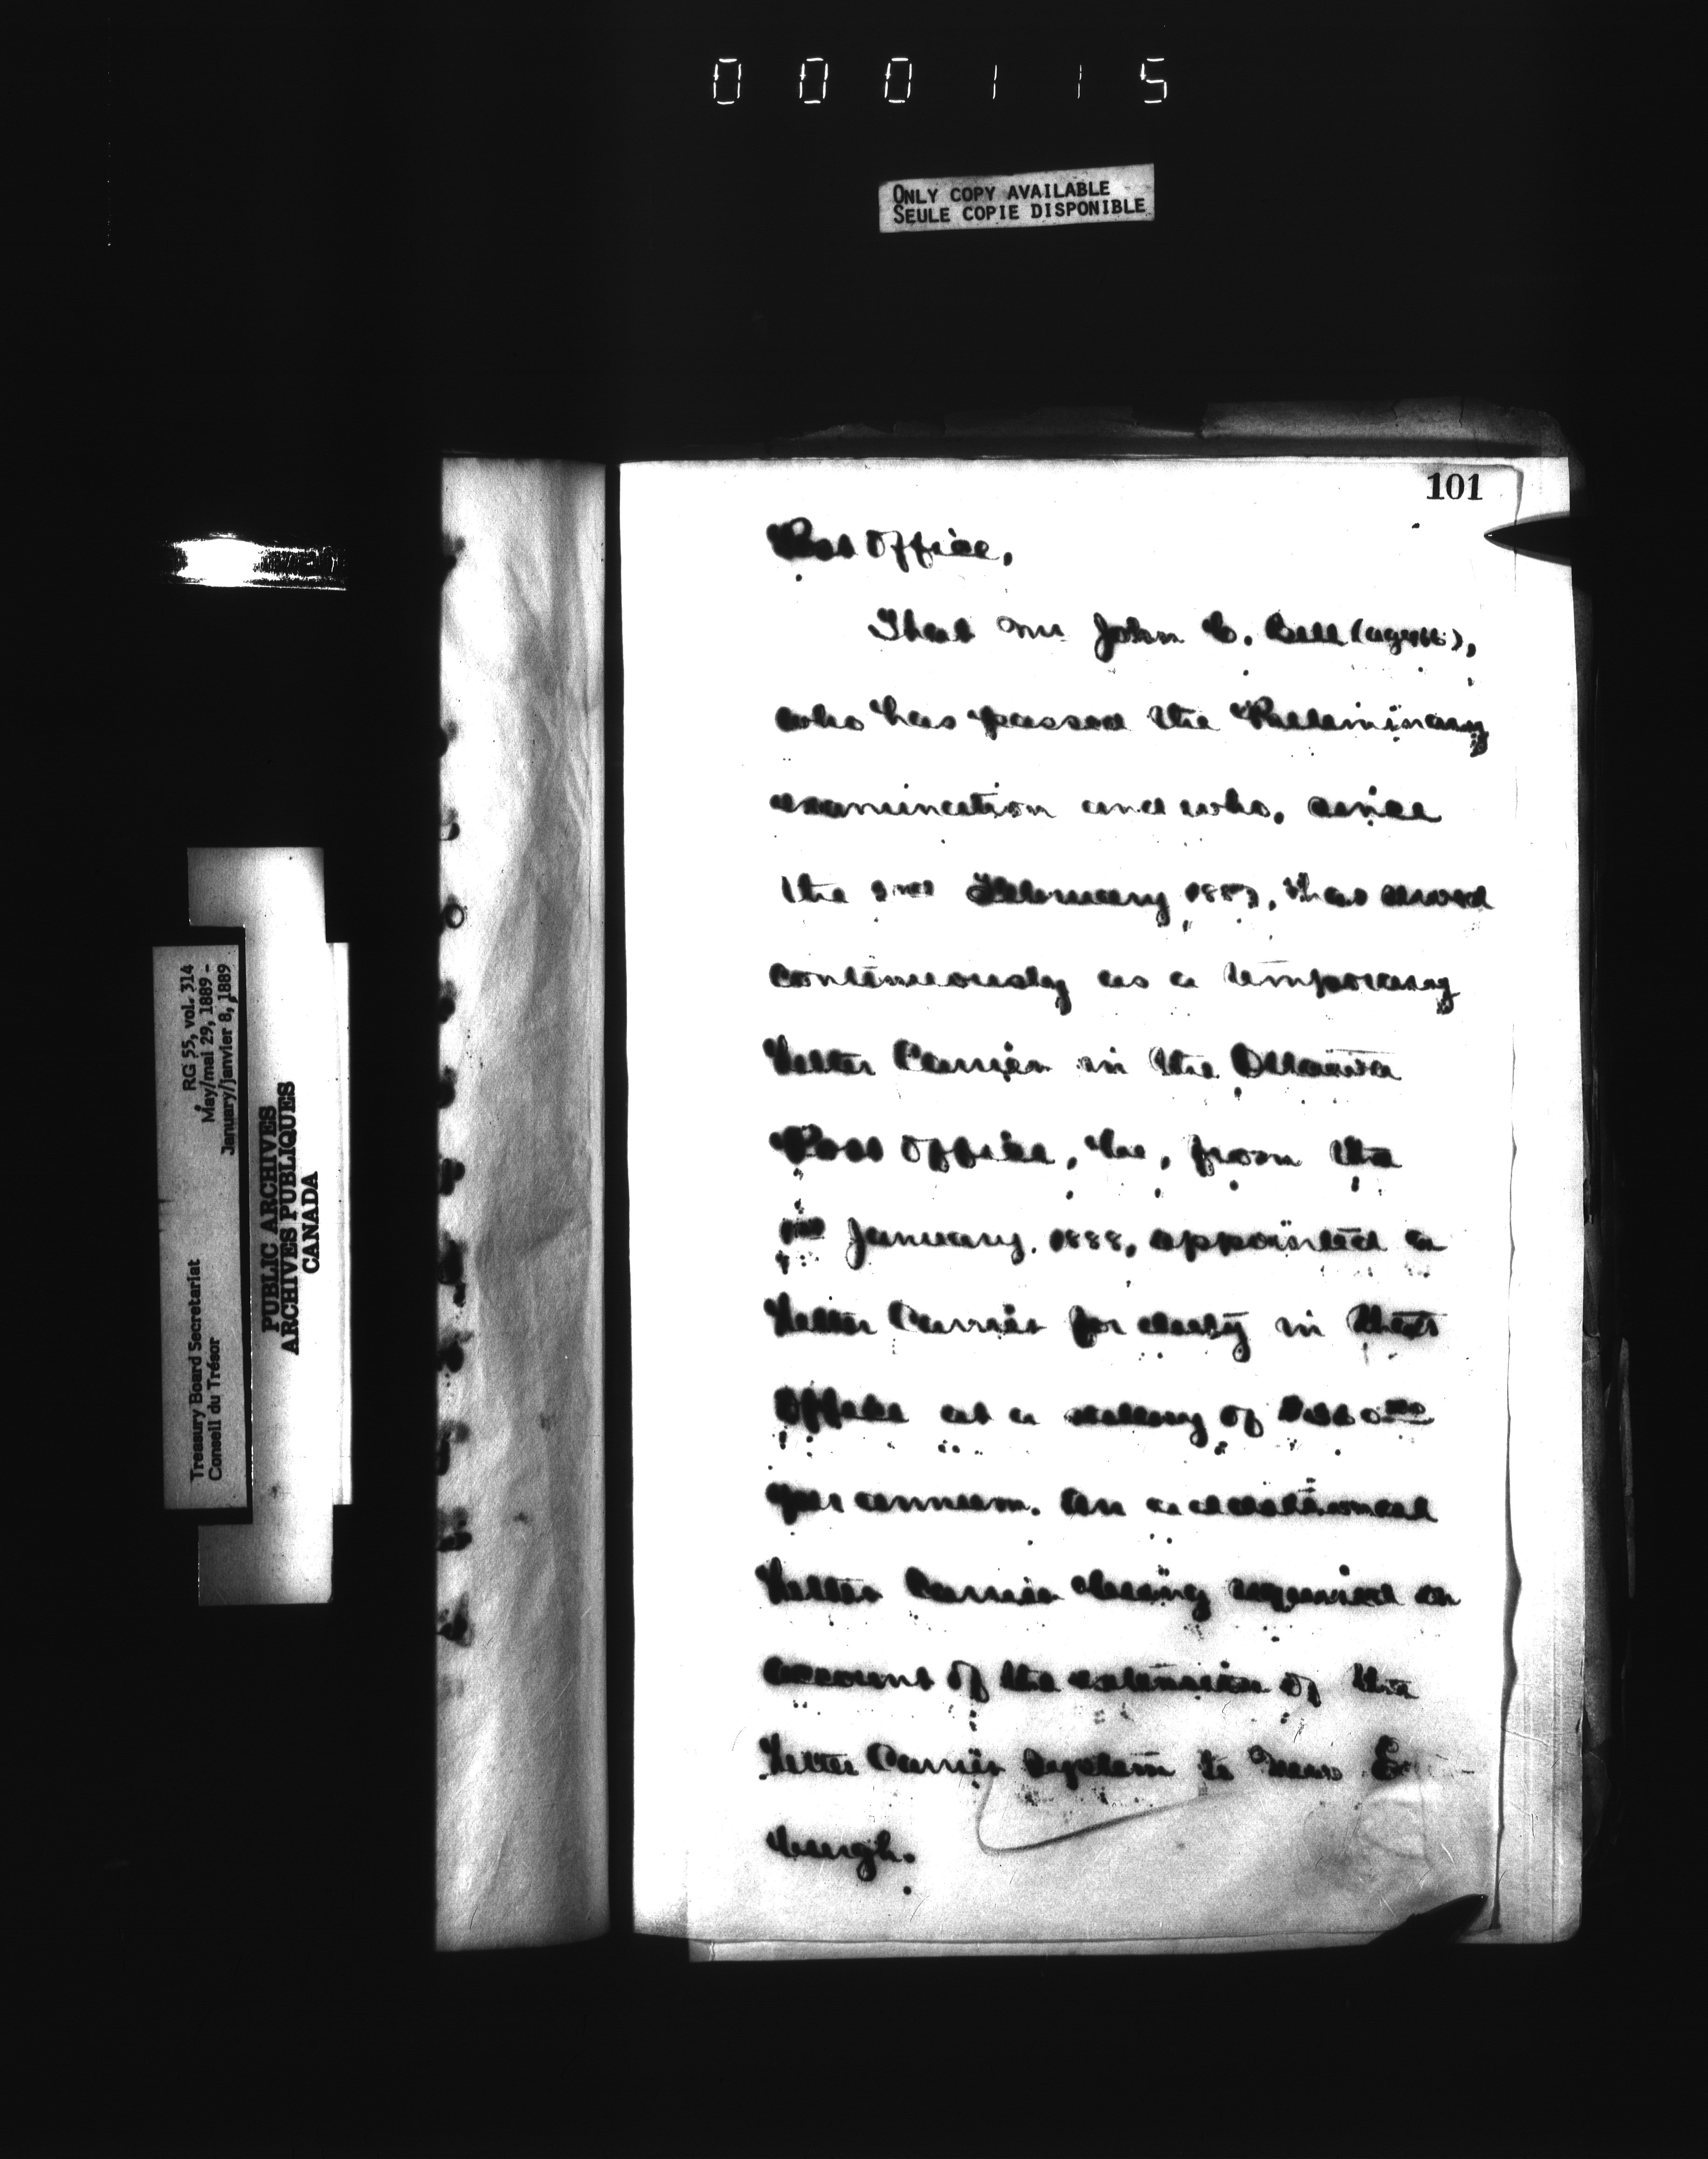 000115
ONLY COPY AVAILABLE
SEULE COPIE DISPONIBLE
101
Post Office,
That Mr John C. Bell (aged
who has passed the Preliminary
examination and who, since
the February 1887, has served
continuously as a temporary
Letter Carrier in the Ottawa
Post Office, be, from the
January, 1888, appointed a
Letter Carrier for duty in that
Office at a salary of
per annum. An additional
Letter Carrier being required on
account of the extension of the
Letter Carrier system to New
burgh.
RG 55, vol. 314
May/mai 29, 1889 -
January/janvier 8, 1889
Treasury Board Secretariat
Conseil du Trésor
PUBLIC ARCHIVES
ARCHIVES PUBLIQUES
CANADA